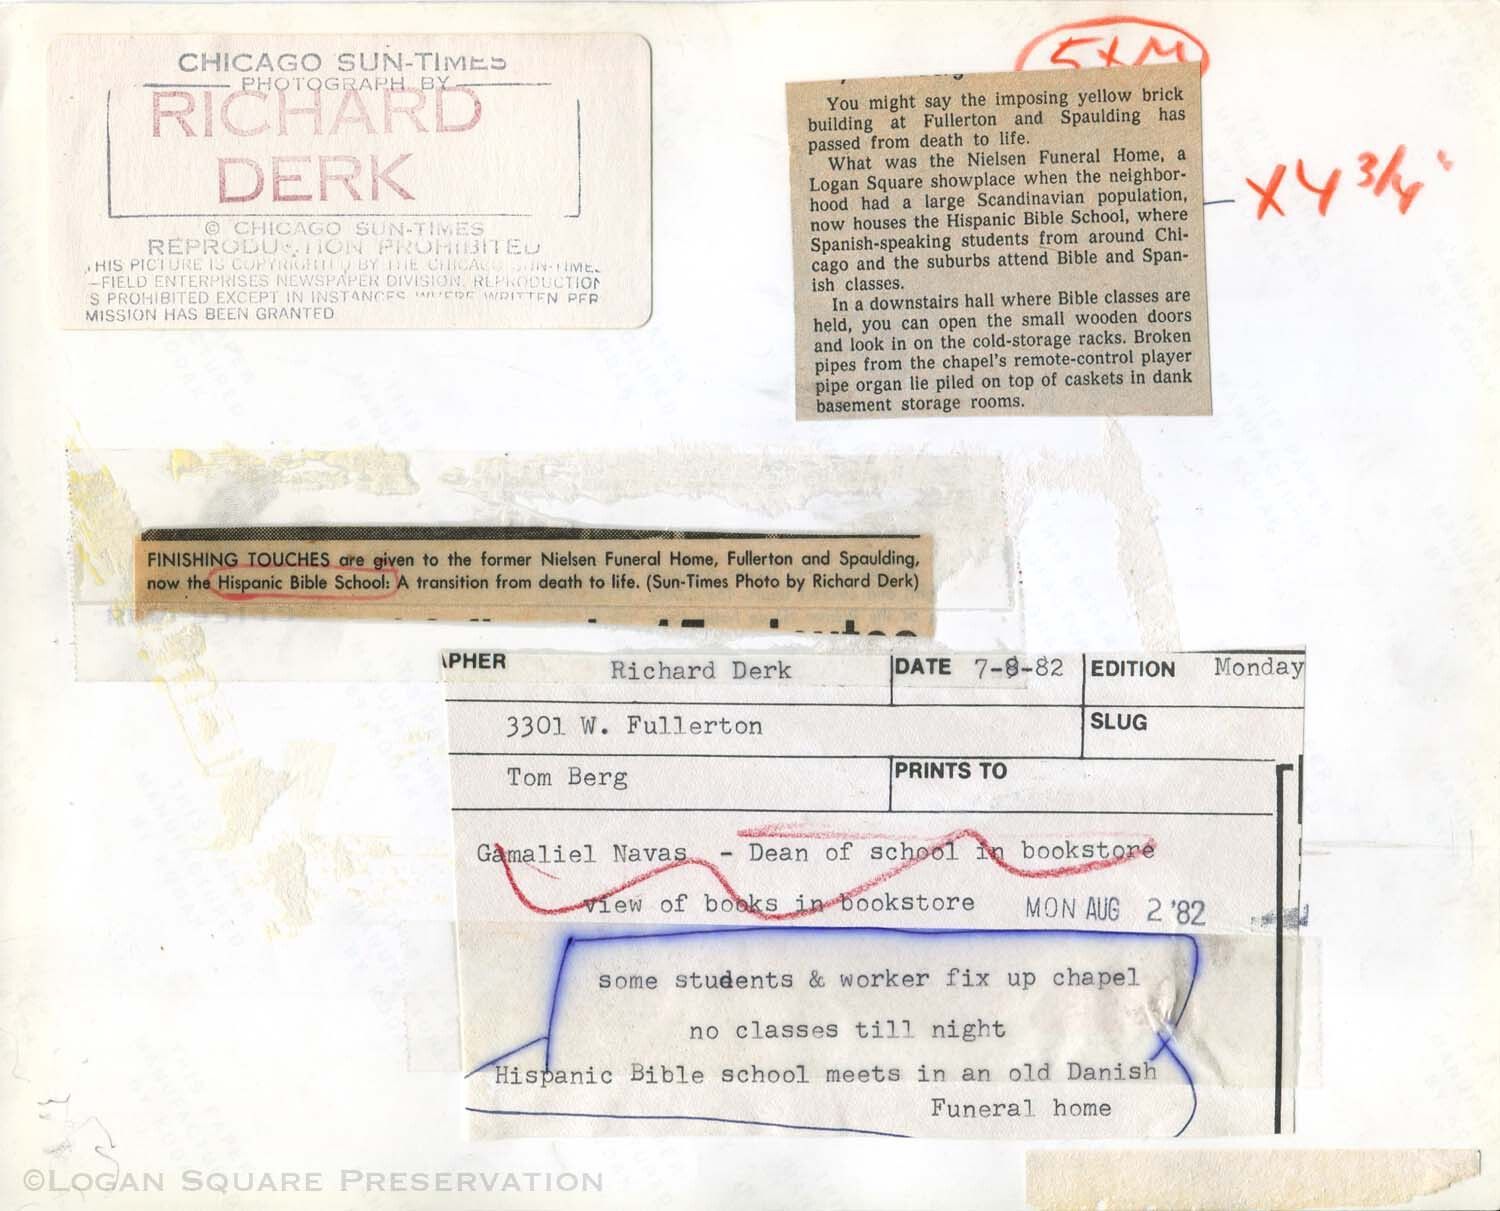 CHICAGO SUN-TIMES
PHOTOGRAPH BY
RICHARD
DERK
© CHICAGO SUN-TIMES
REPRODUCTION PROHIBITED
THIS PICTURE IS COPYRIGHTED BY THE CHICAGO SUN-TIMES
—FIELD ENTERPRISES NEWSPAPER DIVISION. REPRODUCTION
IS PROHIBITED EXCEPT IN INSTANCES WHERE WRITTEN PER
MISSION HAS BEEN GRANTED
X 4 3/4"
You might say the imposing yellow brick
building at Fullerton and Spaulding has
passed from death to life.
What was the Nielsen Funeral Home, a
Logan Square showplace when the neighbor-
hood had a large Scandinavian population,
now houses the Hispanic Bible School, where
Spanish-speaking students from around Chi-
cago and the suburbs attend Bible and Span-
ish classes.
In a downstairs hall where Bible classes are
held, you can open the small wooden doors
and look in on the cold-storage racks. Broken
pipes from the chapel's remote-control player
pipe organ lie piled on top of caskets in dank
basement storage rooms.
FINISHING TOUCHES are given to the former Nielsen Funeral Home, Fullerton and Spaulding,
now the Hispanic Bible School: A transition from death to life. (Sun-Times Photo by Richard Derk)
APHER Richard Derk DATE 7-8-82 EDITION Monday
3301 W. Fullerton SLUG
Tom Berg PRINTS TO
Gamaliel Navas - Dean of school in bookstore
view of books in bookstore MON AUG 2 '82
some students & worker fix up chapel
no classes till night
Hispanic Bible school meets in an old Danish
Funeral home
©LOGAN SQUARE PRESERVATION